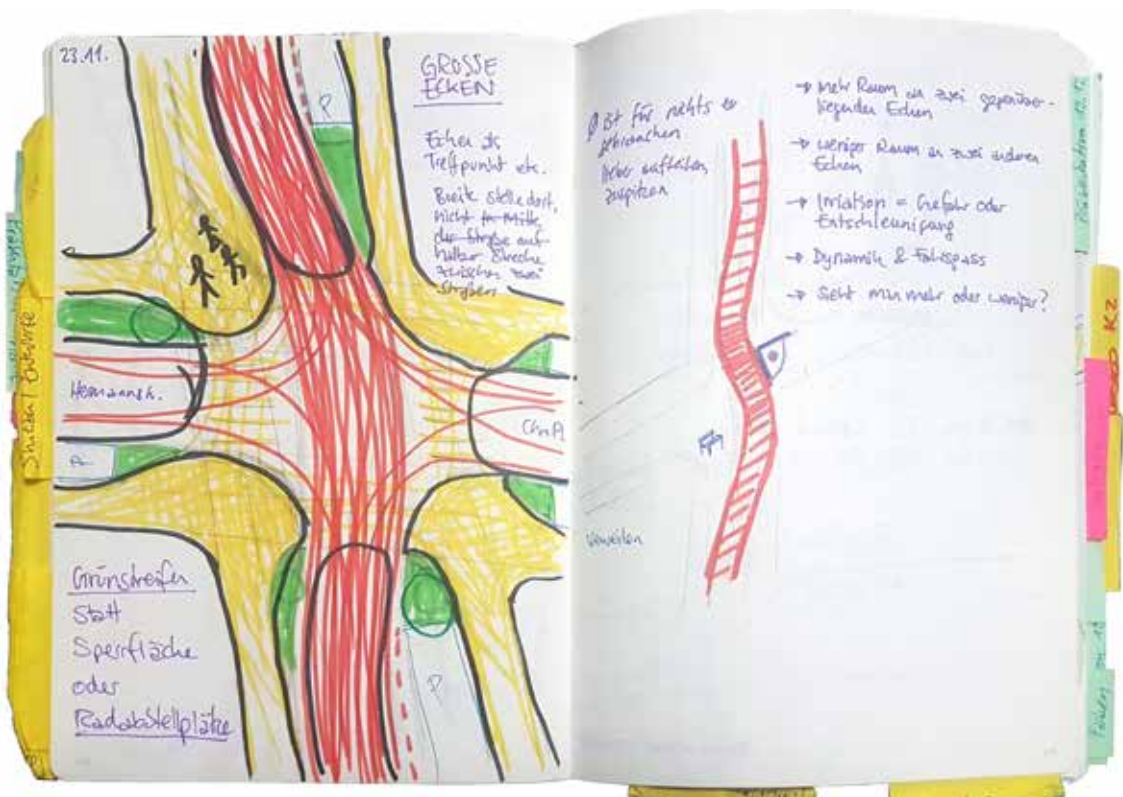 23.11.
GROSSE
ECKEN
P
Ecken als
Treffpunkt etc.
Breite Stelle dort,
nicht in Mitte
der Straße auf
halber Strecke
zwischen zwei
Straßen
Hermannstr.
P
Grünstreifen
statt
Sperrfläche
oder
Radabstellplätze
ist für nichts zu
gebrauchen
lieber
zuspitzen
verweilen
→ mehr Raum an zwei gegenüber-
liegenden Ecken
→ weniger Raum an zwei anderen
Ecken
→ Irritation = Gefahr oder
Entschleunigung
→ Dynamik & Fahrspass
→ Sieht man mehr oder weniger?
Skizzen / Entwürfe
K2